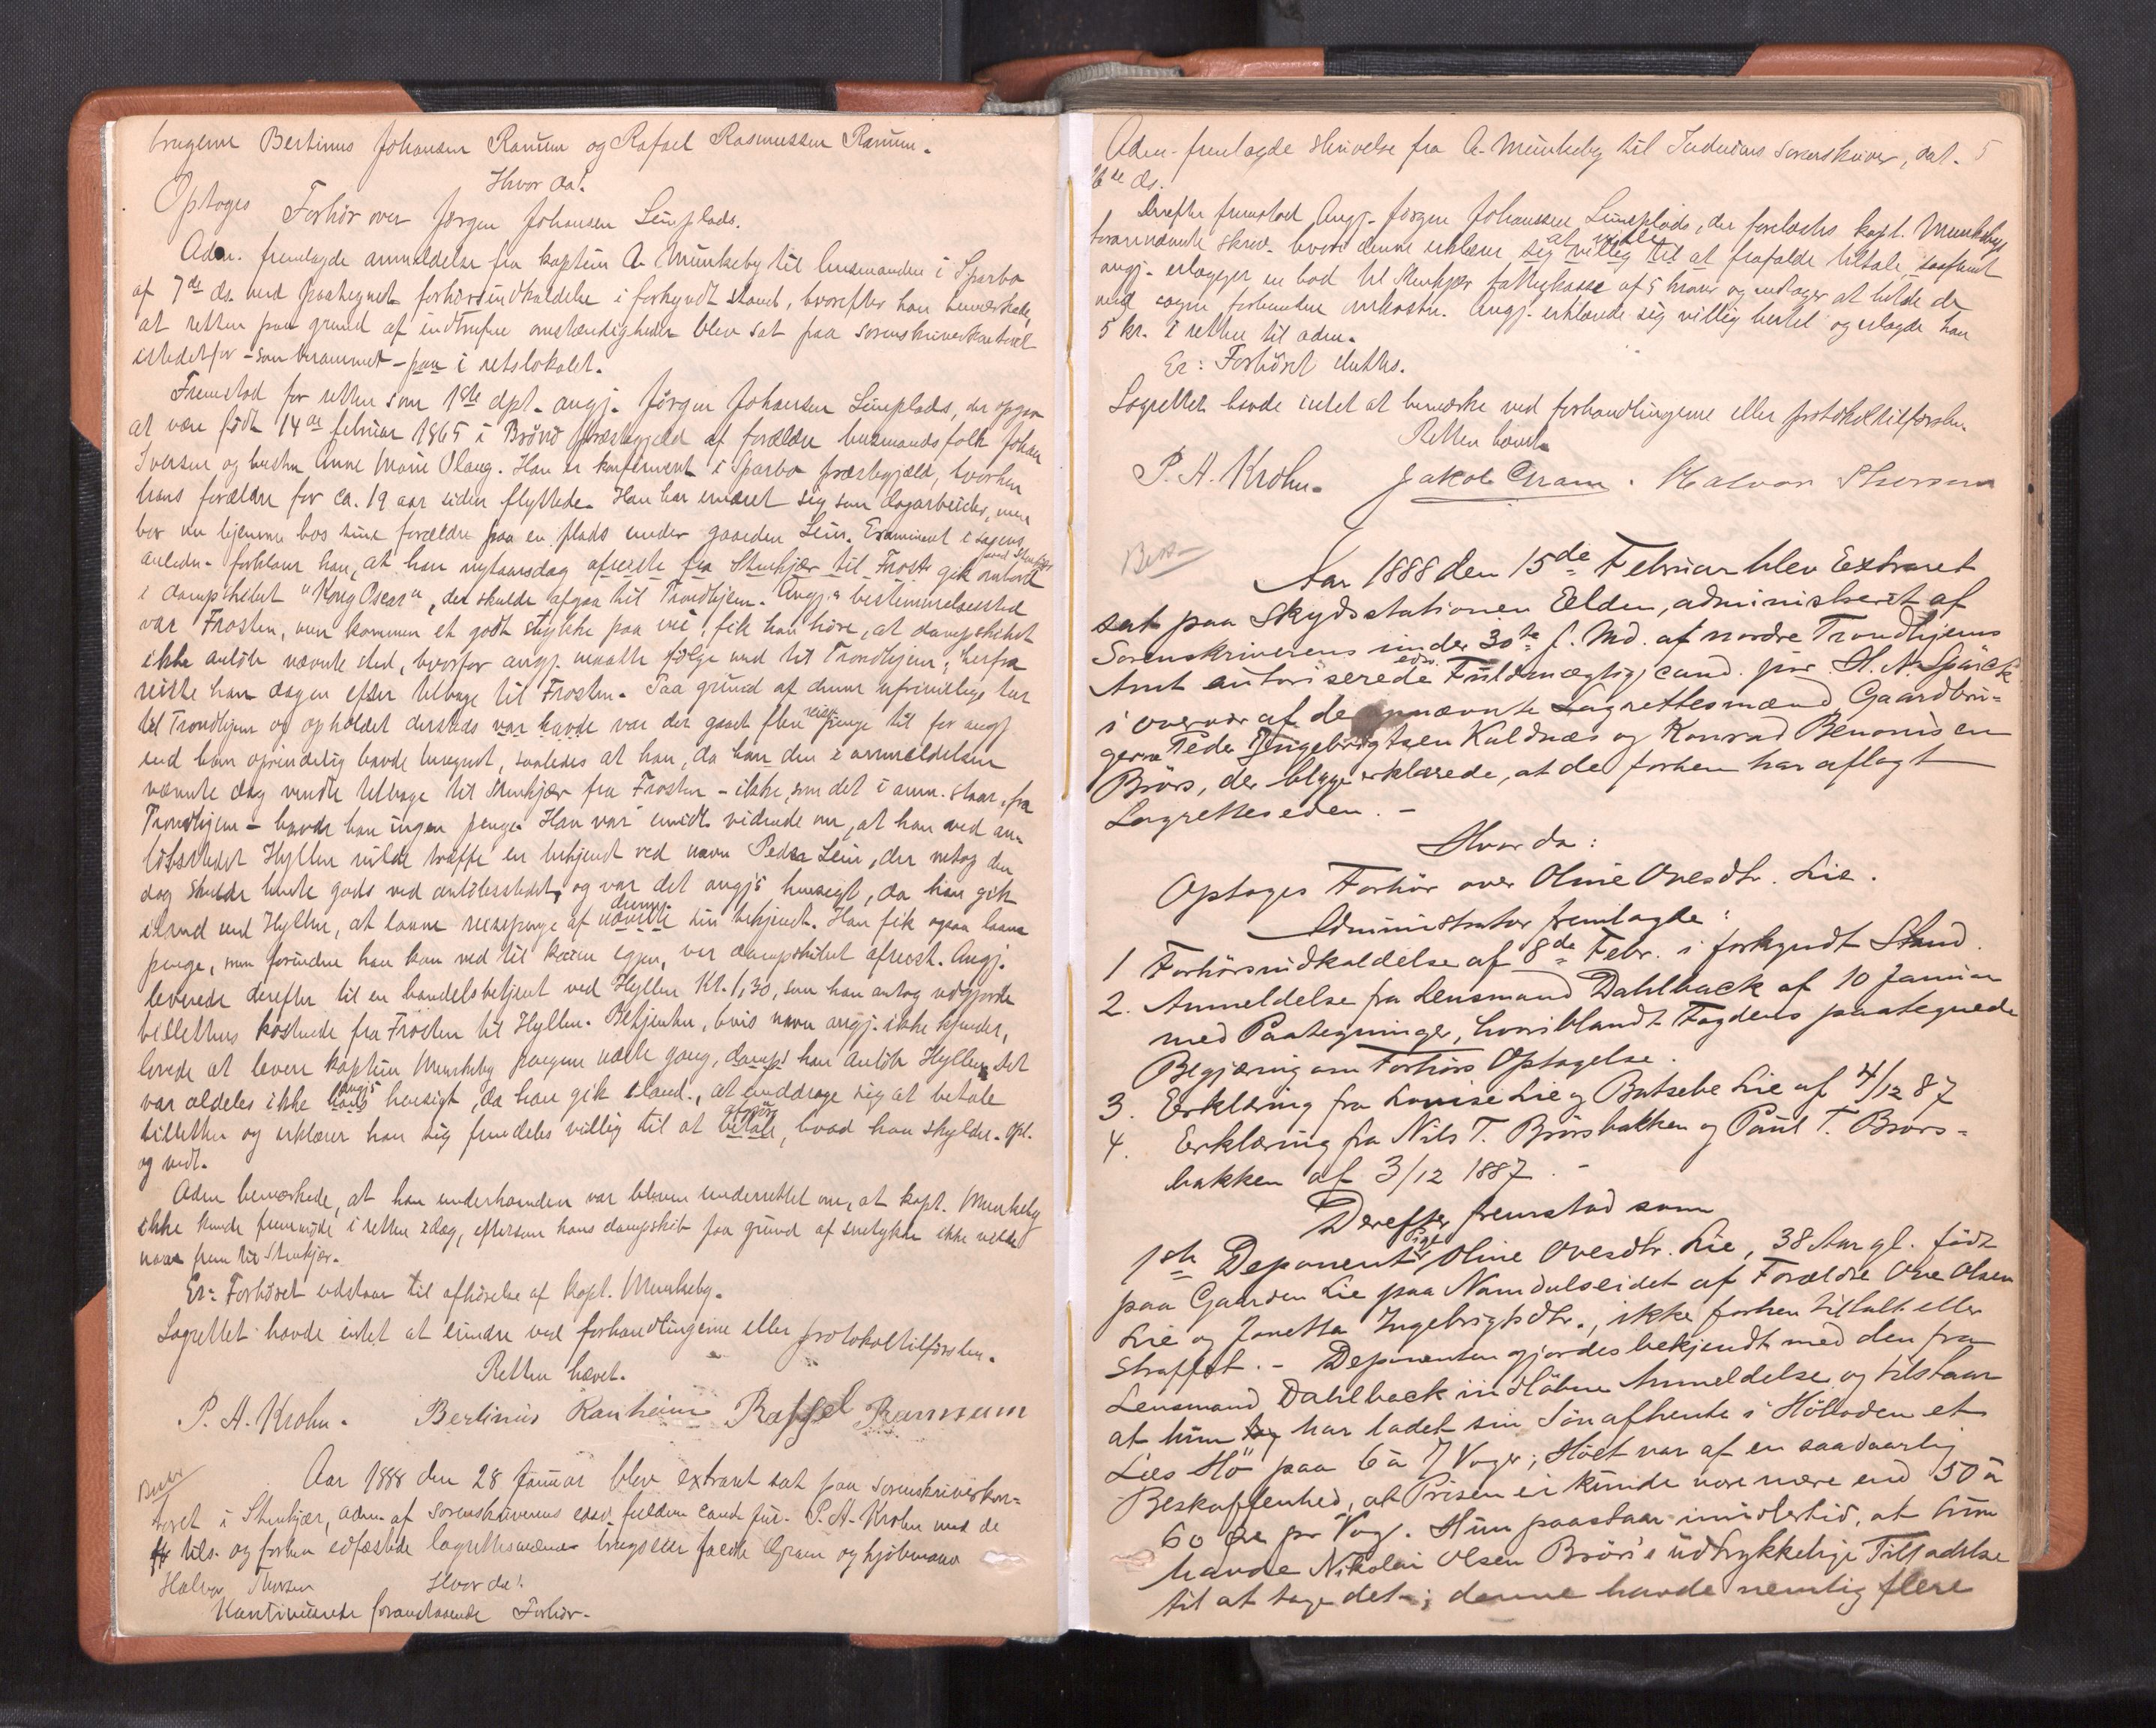 brugerne Bertinus Johansen Ranum og Rafael Rasmussen Ranum.
Hvor da!
Optoges Forhör over Jørgen Johansen Leinplads.
Adm. fremlagde anmeldelse fra kaptein A. Munkeby til lensmanden i Sparbo
af 7de ds. med paategnet forhörsindkaldelse i forkyndt stand, hvorefter han bemærkede,
at retten paa grund af indtrufne omstændigheder blev sat paa sorenskriverkontoret
istedetfor - som berammet - paa i retslokalet.
Fremstod for retten som 1ste dpt. angj. Jörgen Johansen Leinplads, der opgav
at være födt 14de februar 1865 i Præstegjeld af forældre husmandsfolk Johan
Iversen og hustru Anne Marie Olaug. Han er konfirmeret i Sparbo præstegjæld, hvorhen
hans forældre for ca. 19 aar siden flyttede. Han har ernæret sig som dagarbeider, men
bor nu hjemme hos sine forældre paa en plads under gaarden Lein. Examineret i sagens
anledn. forklarer han, at han nytaarsdag afreiste fra Stenkjær til Frosten gik ombord
ved Stenkjær
i dampskibet "Kong Oscar", der skulde afgaa til Trondhjem. Angj.s bestemmelsessted
var Frosten, men kommen et godt stykke paa vei, fik han höre, at dampskibet
ikke anlöb nævnte sted, hvorfor angj. maatte fölge med til Trondhjem; herfra
reiste han dagen efter tilbage til Frosten. Paa grund af denne ufrivillige tur
til Trondhjem og opholdet dersteds var havde var der gaaet flere reisepenge til for angj
end han oprindelig havde beregnet, saaledes at han, da han den i anmeldelsen
nævnte dag vendte tilbage til Stenkjær fra Frosten - ikke, som det i anm. staar, fra
Trondhjem - havde han ingen penge. Han var imidl. vidende om, at han ved an-
löbsstedet Hyllen vilde træffe en bekjendt ved navn Peder Lein, der netop den
dag skulde hente gods ved anlöbsstedet, og var det angj's hensigt, da han gik
iland ved Hyllen, at laane reisepenge af nævnte denne sin bekjendt. Han fik ogsaa laane
penge, men forinden han kom ned til kaien igjen, var dampskibet afreist. Angj.
leverede derefter til en handelsbetjent ved Hyllen Kr. 1,30, som han antog udgjorde
billettens kostende fra Frosten til Hyllen. Betjenten, hvis navn angj. ikke kjender,
lovede at levere kaptein Munkeby pengene næste gang, damps han anlöb Hyllen. Det
var aldeles ikke hans angj's hensigt, da han gik iland, at unddrage sig at betale
billetten og erklærer han sig fremdeles villig til at betale opgjöre, hvad han skylder. Opl.
og vedt.
Adm bemærkede, at han underhaanden var bleven underrettet om, at kapt. Munkeby
ikke kunde fremmöde i retten idag, eftersom hans dampskib paa grund af ikke vilde
naa frem til Stenkjær.
Er: Forhöret udstaar til afhörelse af kapt. Munkeby.
Lagrettet havde intet at erindre ved forhandlingerne eller protokoltilförslen.
Retten hævet.
P. A. Krohn. Bertinus Ranheim Raffel Rannum
Aar 1888 den 28 Januar blev extraret sat paa sorenskriverkon-
toret i Stenkjær, adm. af sorenskriverens edsv. fuldm. cand. jur. P. A. Krohn med de
tils. og forhen edfæstede lagrettesmænd Gram og kjöbmand
Halvor Thorsen Hvor da!
Kontinuerede foranstaaende Forhör.
Adm. fremlagde skrivelse fra A. Munkeby til Inderöens sorenskriver, dat. 5
26de ds.
Derefter fremstod Angj. Jörgen Johansen Leinplads, der forelæstes kapt. Munkebys
foranævnte skriv. hvori denne erklærer sig villig til at ville at frafalde tiltale, saafremt
angj. erlægger en bod til Stenkjær fattigkasse af 5 kroner og vedtager at tilde de
med sagen forbundne omkostn. Angj. erklærede sig villig hertil og erlagde han
5 kr. i retten til adm.
Er: Forhöret sluttes.
Lagrettet havde intet at bemærke ved forhandlingerne eller protokoltilförslen.
Retten hævet.
P. A. Krohn. Jakob Gram. Halvor Thorsen
Aar 1888 den 15de Februar blev Extraret
sat paa Skydsstationen Elden, administreret af
Sorenskriverens under 30te f. Md. af nordre Trondhjems
Amt autoriserede edsv. Fuldmægtig cand. jur. H. N. Gjärck
i overvær af de opnævnte Lagrettesmænd Gaardbru-
gerne Peder Ingebrigtsen Kaldnæs og Konrad Benonisen
Brörs, der begge erklærede, at de forhen har aflagt
Lagretteseden. -
Hvor da:
Optoges Forhör over Oline Ovesdtr. Lie.
Administrator fremlagde:
1 Forhörsindkaldelse af 8de Febr. i forkyndt Stand.
2. Anmeldelse fra Lensmand Dahlback af 10 Januar
med Paategninger, hvoriblandt Fogdens paategnede
Begjæring om Forhörs Optagelse.
3. Erklæring fra Louise Lie og Batsebe Lie af 4/12 87
4. Erklæring fra Nils T. Brörsbakken og Paul T. Brörs-
bakken af 3/12 1887. -
Derefter fremstod som
1ste Deponent Pige Oline Ovesdtr. Lie, 38 Aar gl. födt
paa Gaarden Lie paa Namdalseidet af Forældre Ove Olsen
Lie og Janetta Ingebrigtsdtr., ikke forhen tiltalt eller
straffet. - Deponenten gjordes bekjendt med den fra
Lensmand Dahlback indlöbne Anmeldelse og tilstaar
at hun har ladet sin Sön afhente i Höladen et
Læs Hö paa 6 à 7 Voger; Höet var af en saa daarlig
Beskaffenhed, at Prisen ei kunde være mere end 50 à
60 Öre pr Vog. Hun paastaar imidlertid, at hun
havde Nikolai Olsen Brörs's udtrykkelige Tilladelse
til at tage det; denne havde nemlig flere